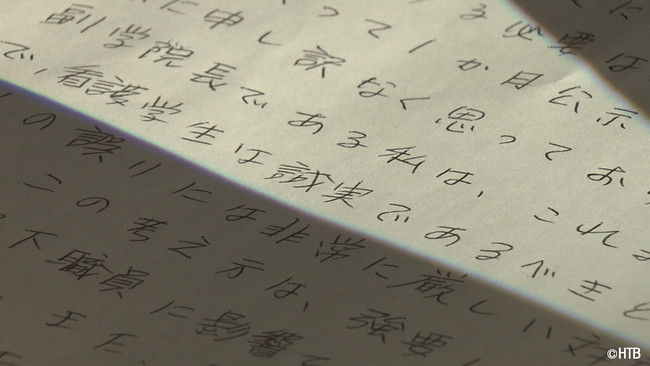 る必要は
って1か月公示
に申し訳なく思ってお
副学院長である私は、これま
で、看護学生は誠実であるべきと
の誤りには非常に厳しい対
この考え示は、強要
下職員に影響
また
©HTB